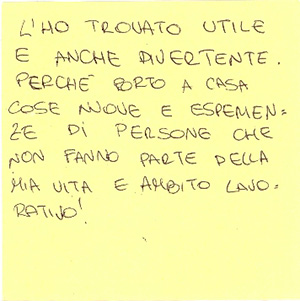 L'HO TROVATO UTILE
E ANCHE DIVERTENTE.
PERCHÉ PORTO A CASA
COSE NUOVE E ESPEMEN=
ZE DI PERSONE CHE
NON FANNO PARTE DELLA
MIA VITA E AMBITO LAVO-
RATIVO!